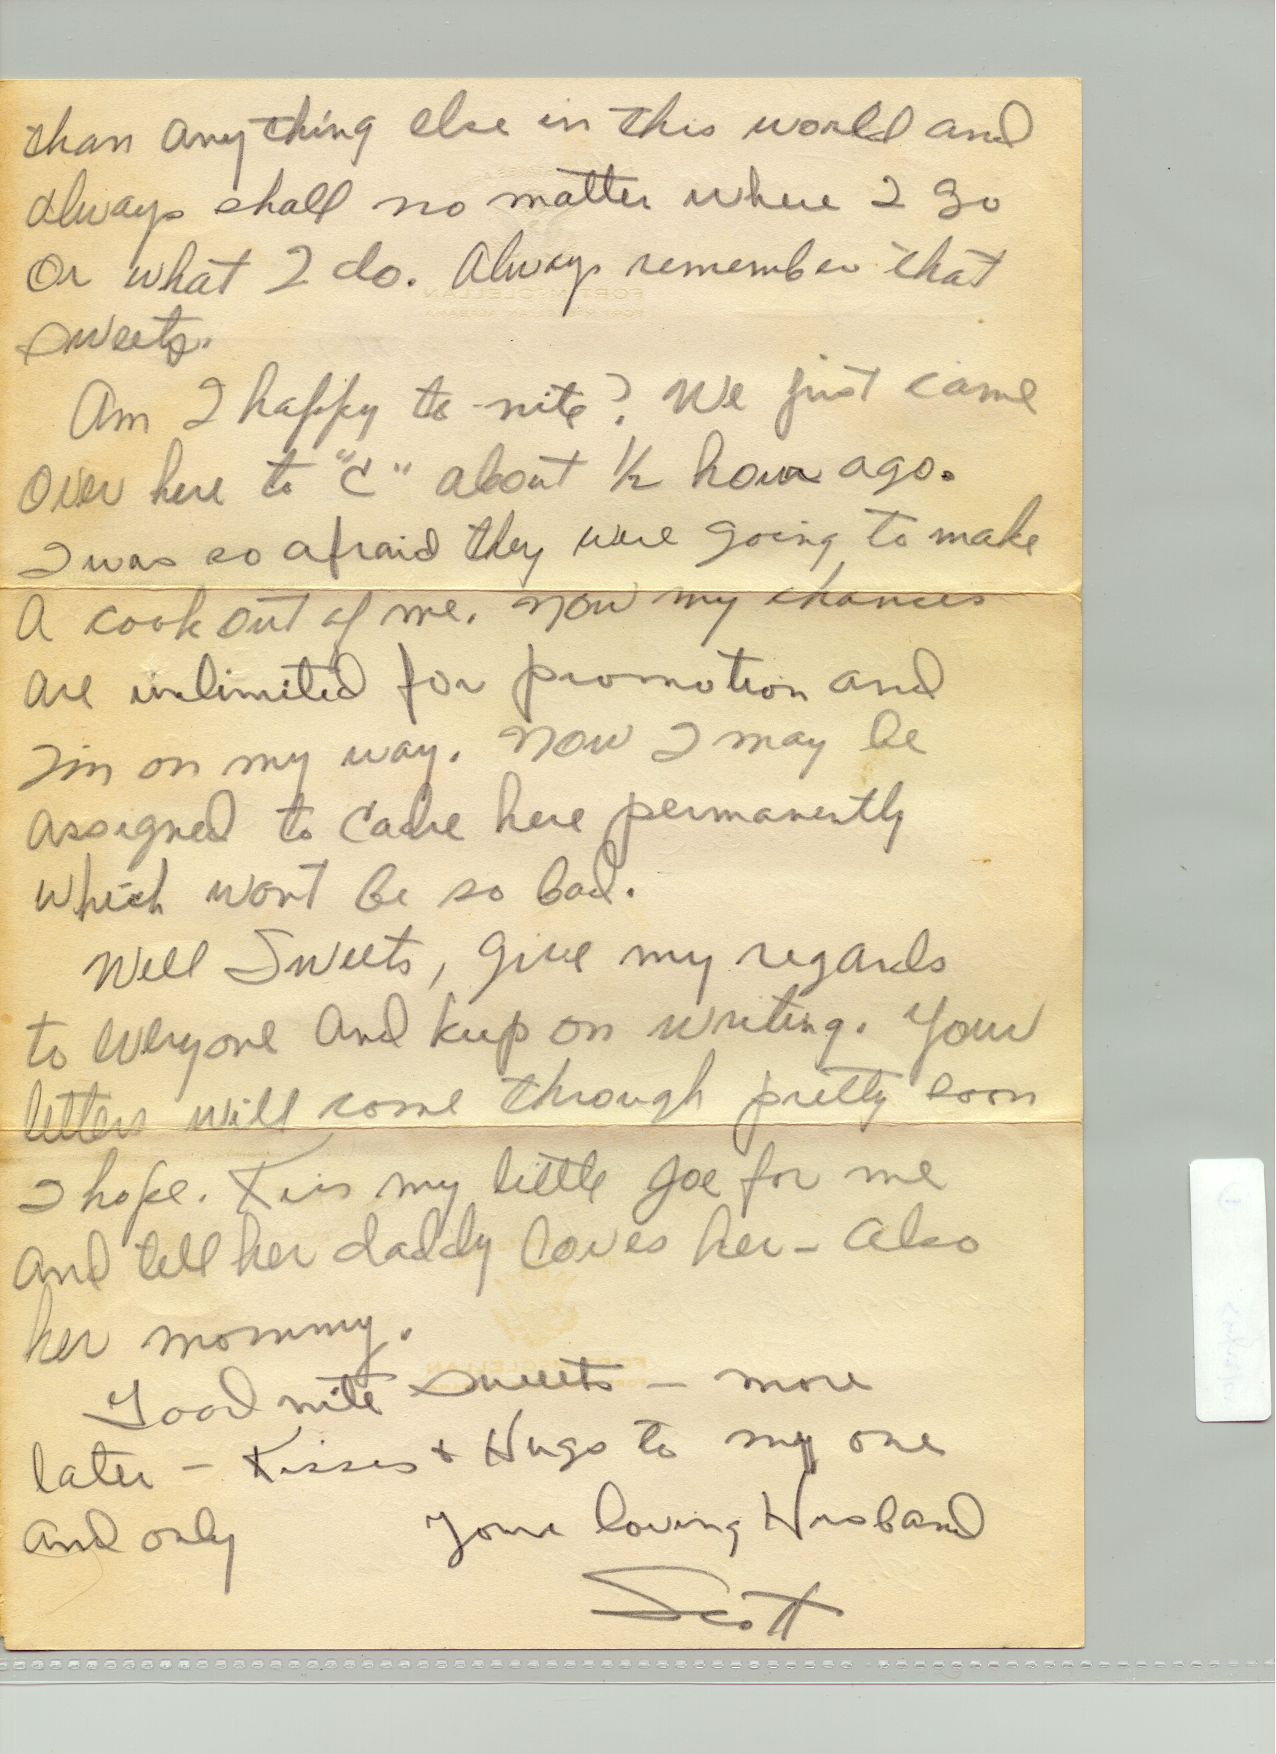 than anything else in this world and
always shall no matter where I go
or what I do. Always remember that
sweets.
Am I happy to-nite? We just came
over here to "C" about 1/2 hour ago.
I was so afraid they were going to make
a cook out of me. Now my chances
are unlimited for promotion and
I'm on my way. Now I may be
assigned to Cadre here permanently
which wont be so bad.
Well Sweets, give my regards
to everyone and keep on writing. Your
letters will come through pretty soon
I hope. Kiss my little Joe for me
and tell her daddy loves her - also
her mommy.
Good nite sweets - more
later - Kisses + Hugs to my one
and only Your loving Husband
Scott